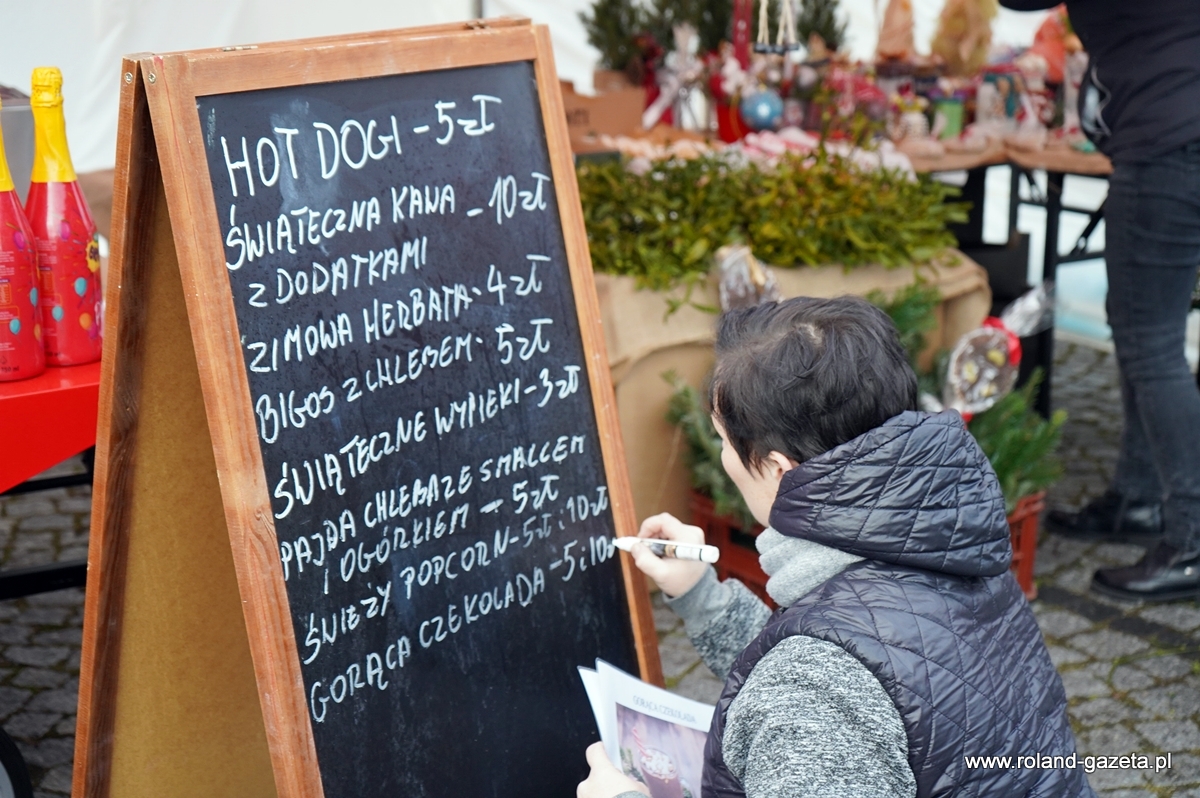 HOT DOGI - 5 ZŁ
ŚWIĄTECZNA KAWA - 10 ZŁ
Z DODATKAMI
ZIMOWA HERBATA - 4 ZŁ
BIGOS Z CHLEBEM - 5 ZŁ
ŚWIĄTECZNE WYPIEKI - 3 ZŁ
PAJDA CHLEBA ZE SMALCEM
I OGÓRKIEM - 5 ZŁ
ŚWIEŻY POPCORN - 5 ZŁ i 10 ZŁ
GORĄCA CZEKOLADA - 5 i 10 Z
GORĄCA CZEKOLADA
www.roland-gazeta.pl